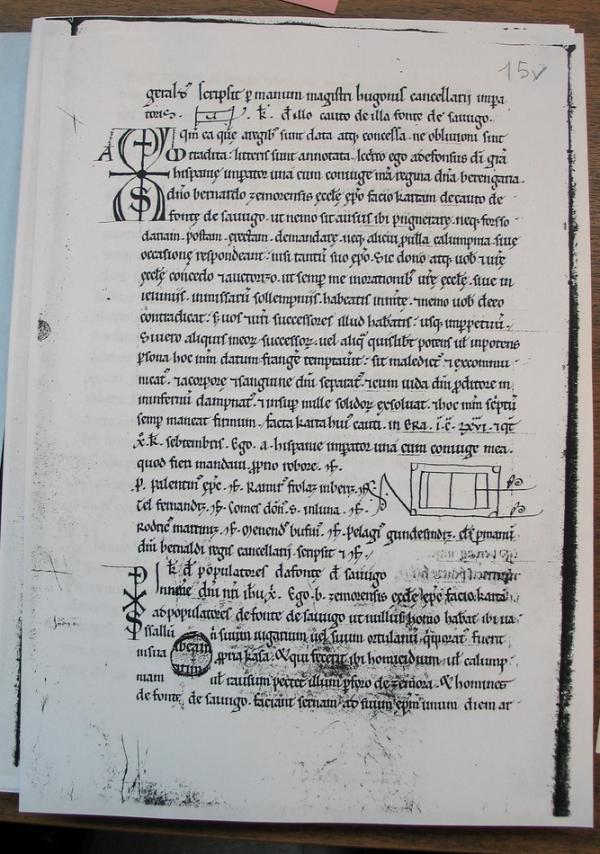 15v
geral᷒ scripsit ꝑ manum magistri hugonis cancellarij impa
toris. k. d illo cauto de illa fonte de sauugo.
qm ea que aregib᷒ sunt data atq; concessa. ne obliuioni sint
A tradita: litteris sunt annotata. ego adefonsus di gra
hispanie impator una cum coniuge mea regina dna berengaria.
dno bernardo zemorensis eccle epo facio kartam de cauto de
fonte de sauugo. ut nemo sit ausus ibi pignerare. neq; forsso
dariam. postam. erectam. demandare. neq; alicui ulla calumpnia siue
occasione respondeant: nisi tantu suo epo. Sic dono atq; uob
eccle concedo auctorizo. ut semp me morationib᷒ ure eccle. siue in
ieiunijs. in missaru sollempnijs. habeatis inmite. nemo uob de eo
contradicat: s uos uri successores illud habeatis: usq; inppetuu.
Siuero aliquis meor successor. uel aliq quislibet potens ul inpotens
psona hoc mm datum frange temptauit: sit maledict excommu
nicat. acorpore sanguine dni separat. cum iuda dni pditore in
infernu dampnat. insup mille solidos exsoluat. hoc mm septu
semp maneat firmum. facta karta hui cauti. in ERA. i.c. lxxvi. qt
x. k. septembris. Ego. a. hispanie impator una cum coniuge mea.
quod fieri mandaui. ppno robore. cf.
p. palentin epc. cf. Ramir frolaz
tel fernandiz. cf. Comes S. inluna. cf.
Rodric martiniz. cf. Menend bufin. cf. Pelagi gundesindiz. pmanu
dni bernaldi regis cancellarij. scripsit cf.
k. d populatores dafonte d sauugo
nomine dni nri ihu x. Ego. b. zemorensis eccle epc facio karta
ad populatores de fonte de sauugo ut nullus homo habeat ibi ua
ssallu suum iugarium uel suum ortulanu fuerit
insua ppria kasa. & qui fecerit ibi homicidium. ul calump
niam ul rausum pectet illum pforo de zemora. & homines
de fonte de sauugo. faciant sernam. ad suum epm unum diem ad